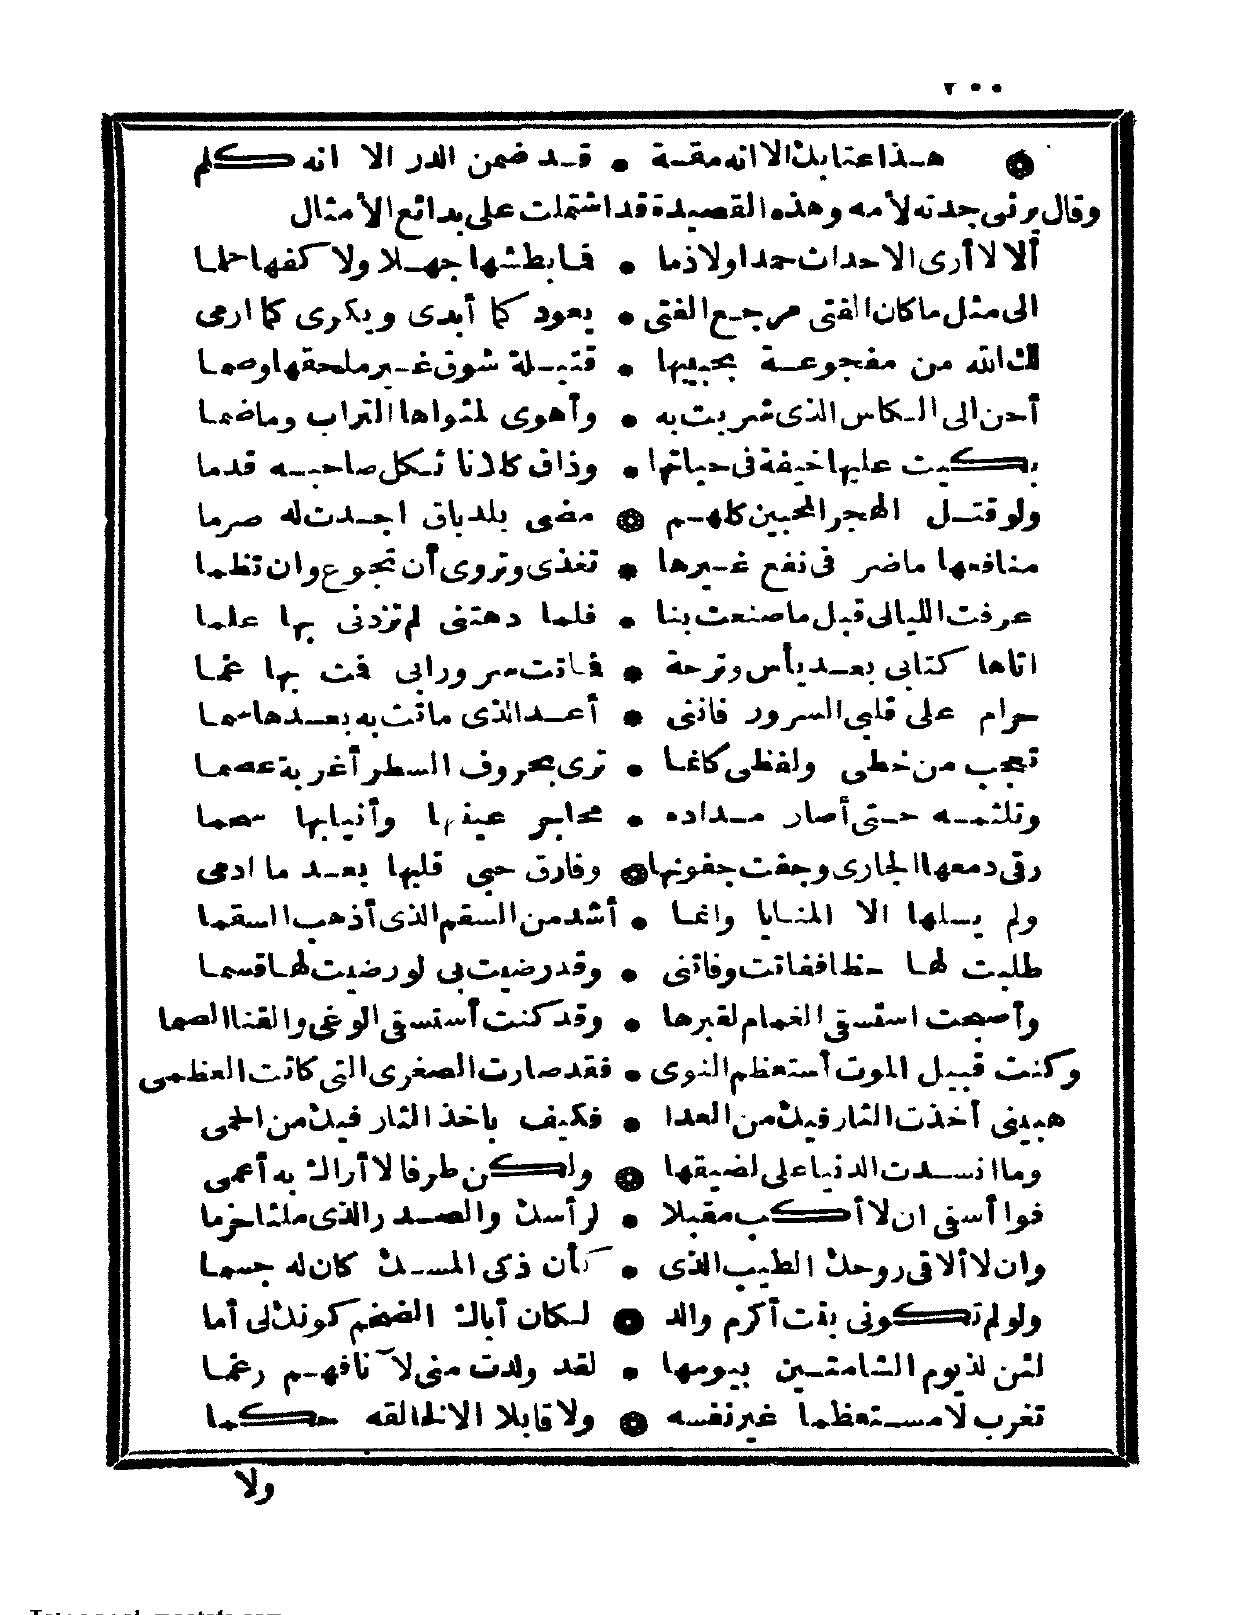 ٢٠٠
هذا عتابك الا انه مقة * قد ضمن الدر الا انه كلم
وقال يرثى جدته لأمه وهذه القصيدة قد اشتملت على بدائع الأمثال
ألا لا أرى الاحداث حمدا ولا ذما * فما بطشها جهلا ولا كفها حلما
الى مثل ما كان الفتى مرجع الفتى * يعود كما أبدى ويكرى كما ارمى
لك الله من مفجوعة بحبيبها * قتيلة شوق غير ملحقها وصما
أحن الى الكاس الذى شربت به * وأهوى لمثواها التراب وما ضما
بكيت عليها خيفة فى حياتها * وذاق كلانا ثكل صاحبه قدما
ولو قتل الهجر المحبين كلهم * مضى بلد باق اجدت له صرما
منافعها ما ضر فى نفع غيرها * تغذى وتروى أن تجوع وان تظما
عرفت الليالى قبل ما صنعت بنا * فلما دهتنى لم تزدنى بها علما
اتاها كتابى بعد يأس وترحة * فماتت سرورا بى فمت بها غما
حرام على قلبى السرور فاننى * أعد الذى ماتت به بعدها سما
تعجب من خطى ولفظى كانما * ترى بحروف السطر أغربة عصما
وتلثمه حتى أصار مداده * محاجر عينها وأنيابها سحما
رقى دمعها الجارى وجفت جفونها * وفارق حبى قلبها بعد ما ادمى
ولم يسلها الا المنايا وانما * أشد من السقم الذى أذهب السقما
طلبت لها حظا ففاتت وفاتنى * وقد رضيت بى لو رضيت لها قسما
وأصبحت استسقى الغمام لقبرها * وقد كنت أستسقى الوغى والقنا الصما
وكنت قبيل الموت أستعظم النوى * فقد صارت الصغرى التى كانت العظمى
هبينى أخذت الثار فيك من العدا * فكيف باخذ الثار فيك من الحمى
وما انسدت الدنيا على لضيقها * ولكن طرفا لا أراك به أعمى
فوا أسفى ان لا أكب مقبلا * لرأسك والصدر الذى ملئا حزما
وان لا ألاقى روحك الطيب الذى * كأن ذكى المسك كان له جسما
ولو لم تكونى بنت أكرم والد * لكان أباك الضخم كونك لى أما
لئن لذ يوم الشامتين بيومها * لقد ولدت منى لآنافهم رغما
تغرب لا مستعظما غير نفسه * ولا قابلا الا لخالقه حكما
ولا